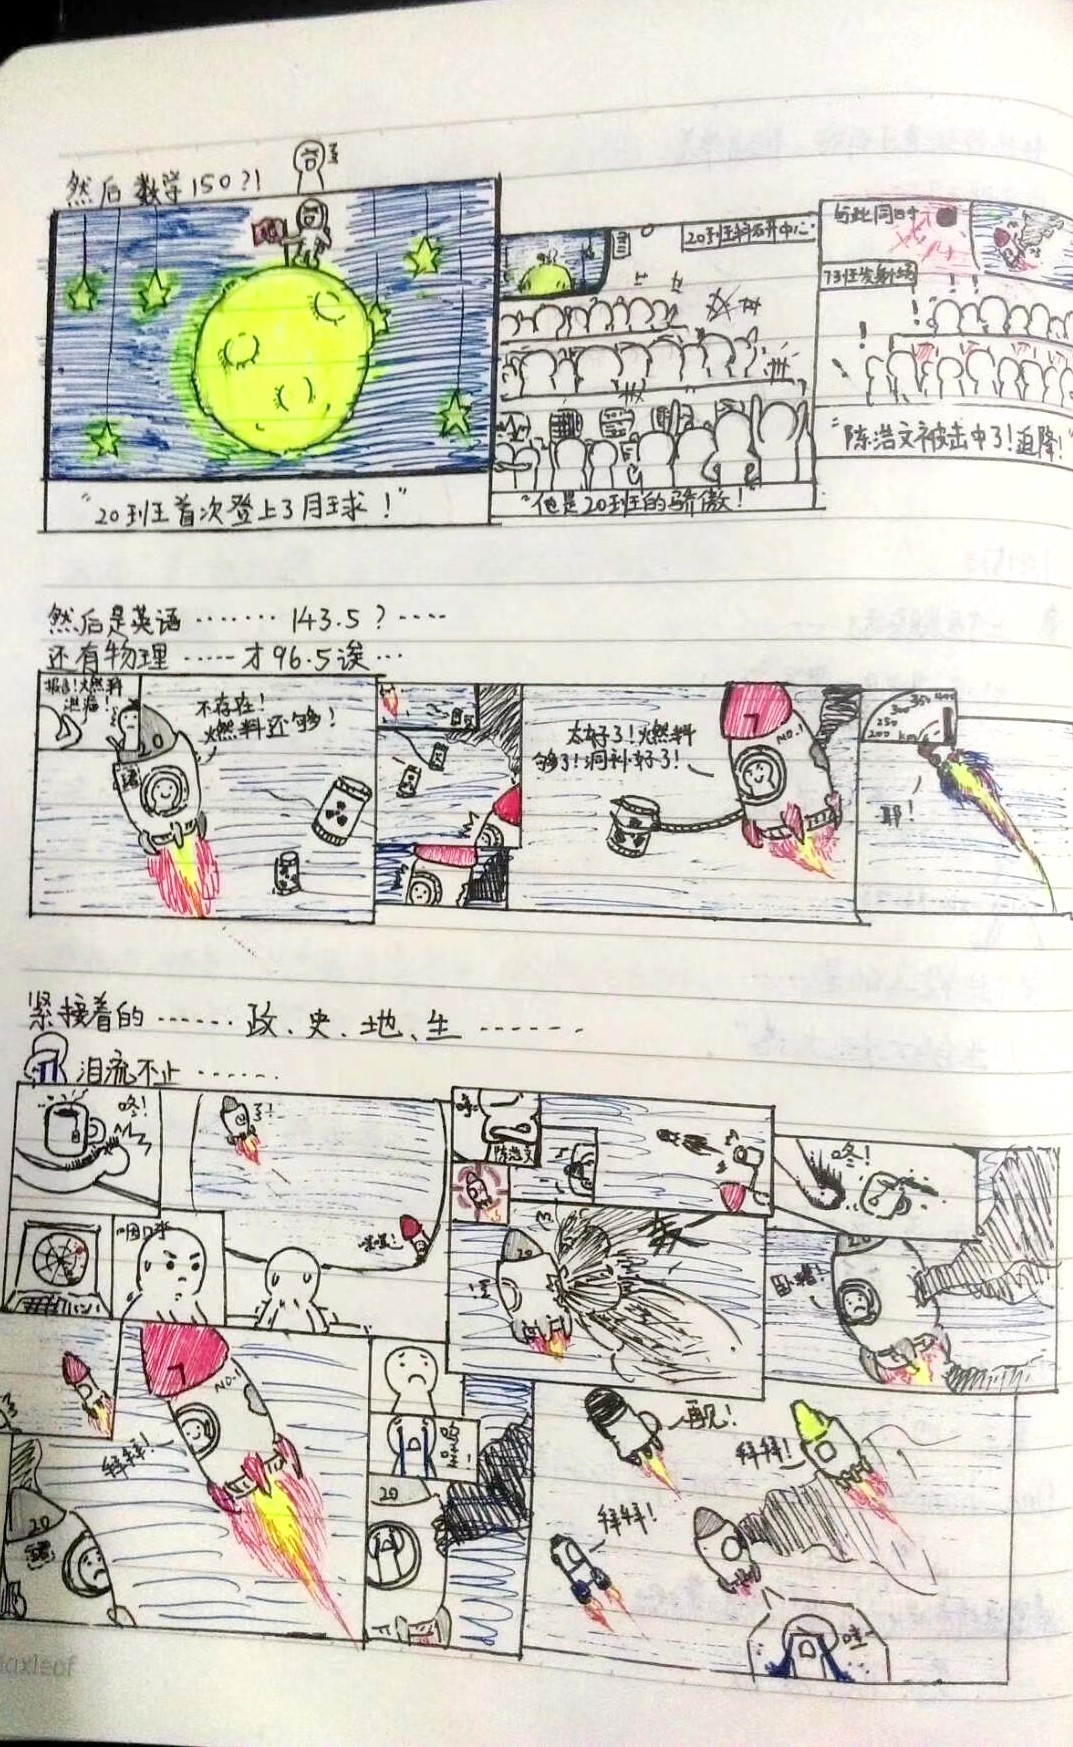 然后数学150?!
"20班首次登上了月球!"
20班科研中心
"他是20班的骄傲!"
与此同时
7班发射场
"陈浩文被击中了!迫降!"
然后是英语……143.5?……
还有物理……才96.5诶…
报告!燃料
泄漏!
不存在!
燃料还够!
太好了!燃料
够了!洞补好了!
NO.1
200 km/s
250
300
350
耶!
紧接着的……政、史、地、生……
泪流不止……
咚!
陈浩文
咚!
20
7
NO.1
拜拜!
20
呜
哇!
20
再见!
拜拜!
拜拜!
哇~